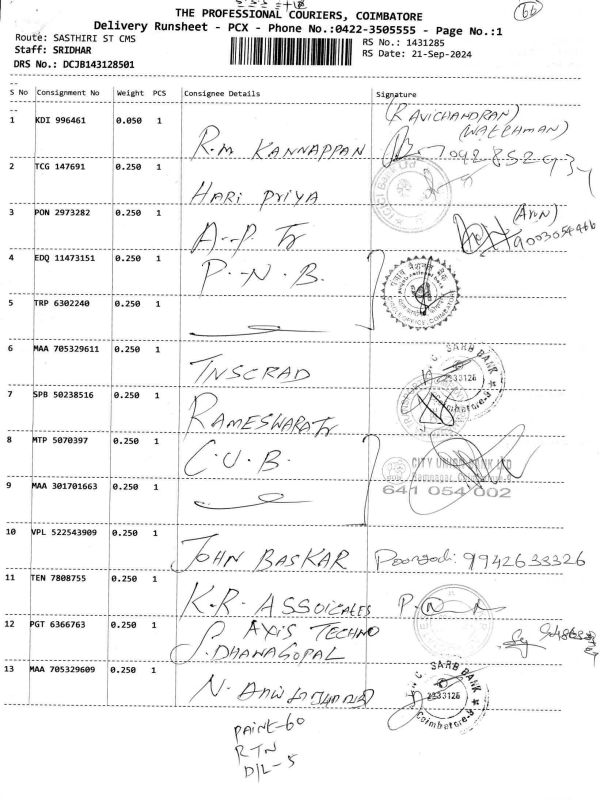 66
THE PROFESSIONAL COURIERS, COIMBATORE
Delivery Runsheet - PCX - Phone No.:0422-3505555 - Page No.:1
Route: SASTHIRI ST CMS
RS No.: 1431285
Staff: SRIDHAR
RS Date: 21-Sep-2024
DRS No.: DCJB143128501
S No Consignment No Weight PCS Consignee Details Signature
(RAVICHANDRAN)
(WATCHMAN)
1 KDI 996461 0.050 1 R.M KANNAPPAN
2 TCG 147691 0.250 1 HARI PRIYA
3 PON 2973282 0.250 1 A.-P. Tr (Arun) 9003054466
4 EDQ 11473151 0.250 1 P.-N.B.
5 TRP 6302240 0.250 1
6 MAA 705329611 0.250 1 TNSCRAD
SARB BANK
2333126
Coimbatore-9
7 SPB 50238516 0.250 1 RAMESWARA Tr
8 MTP 5070397 0.250 1 C.U.B.
CITY UNION BANK LTD
9 MAA 301701663 0.250 1
641 054 002
10 VPL 522543909 0.250 1 JOHN BASKAR 9942633326
11 TEN 7808755 0.250 1 K.R. ASSOICATES
12 PGT 6366763 0.250 1 AXIS TECHNO
S.DHANAGOPAL
13 MAA 705329609 0.250 1 N.
C. SARB BANK
2333126
Coimbatore-9
PAINT-60
RTN
D/L-5